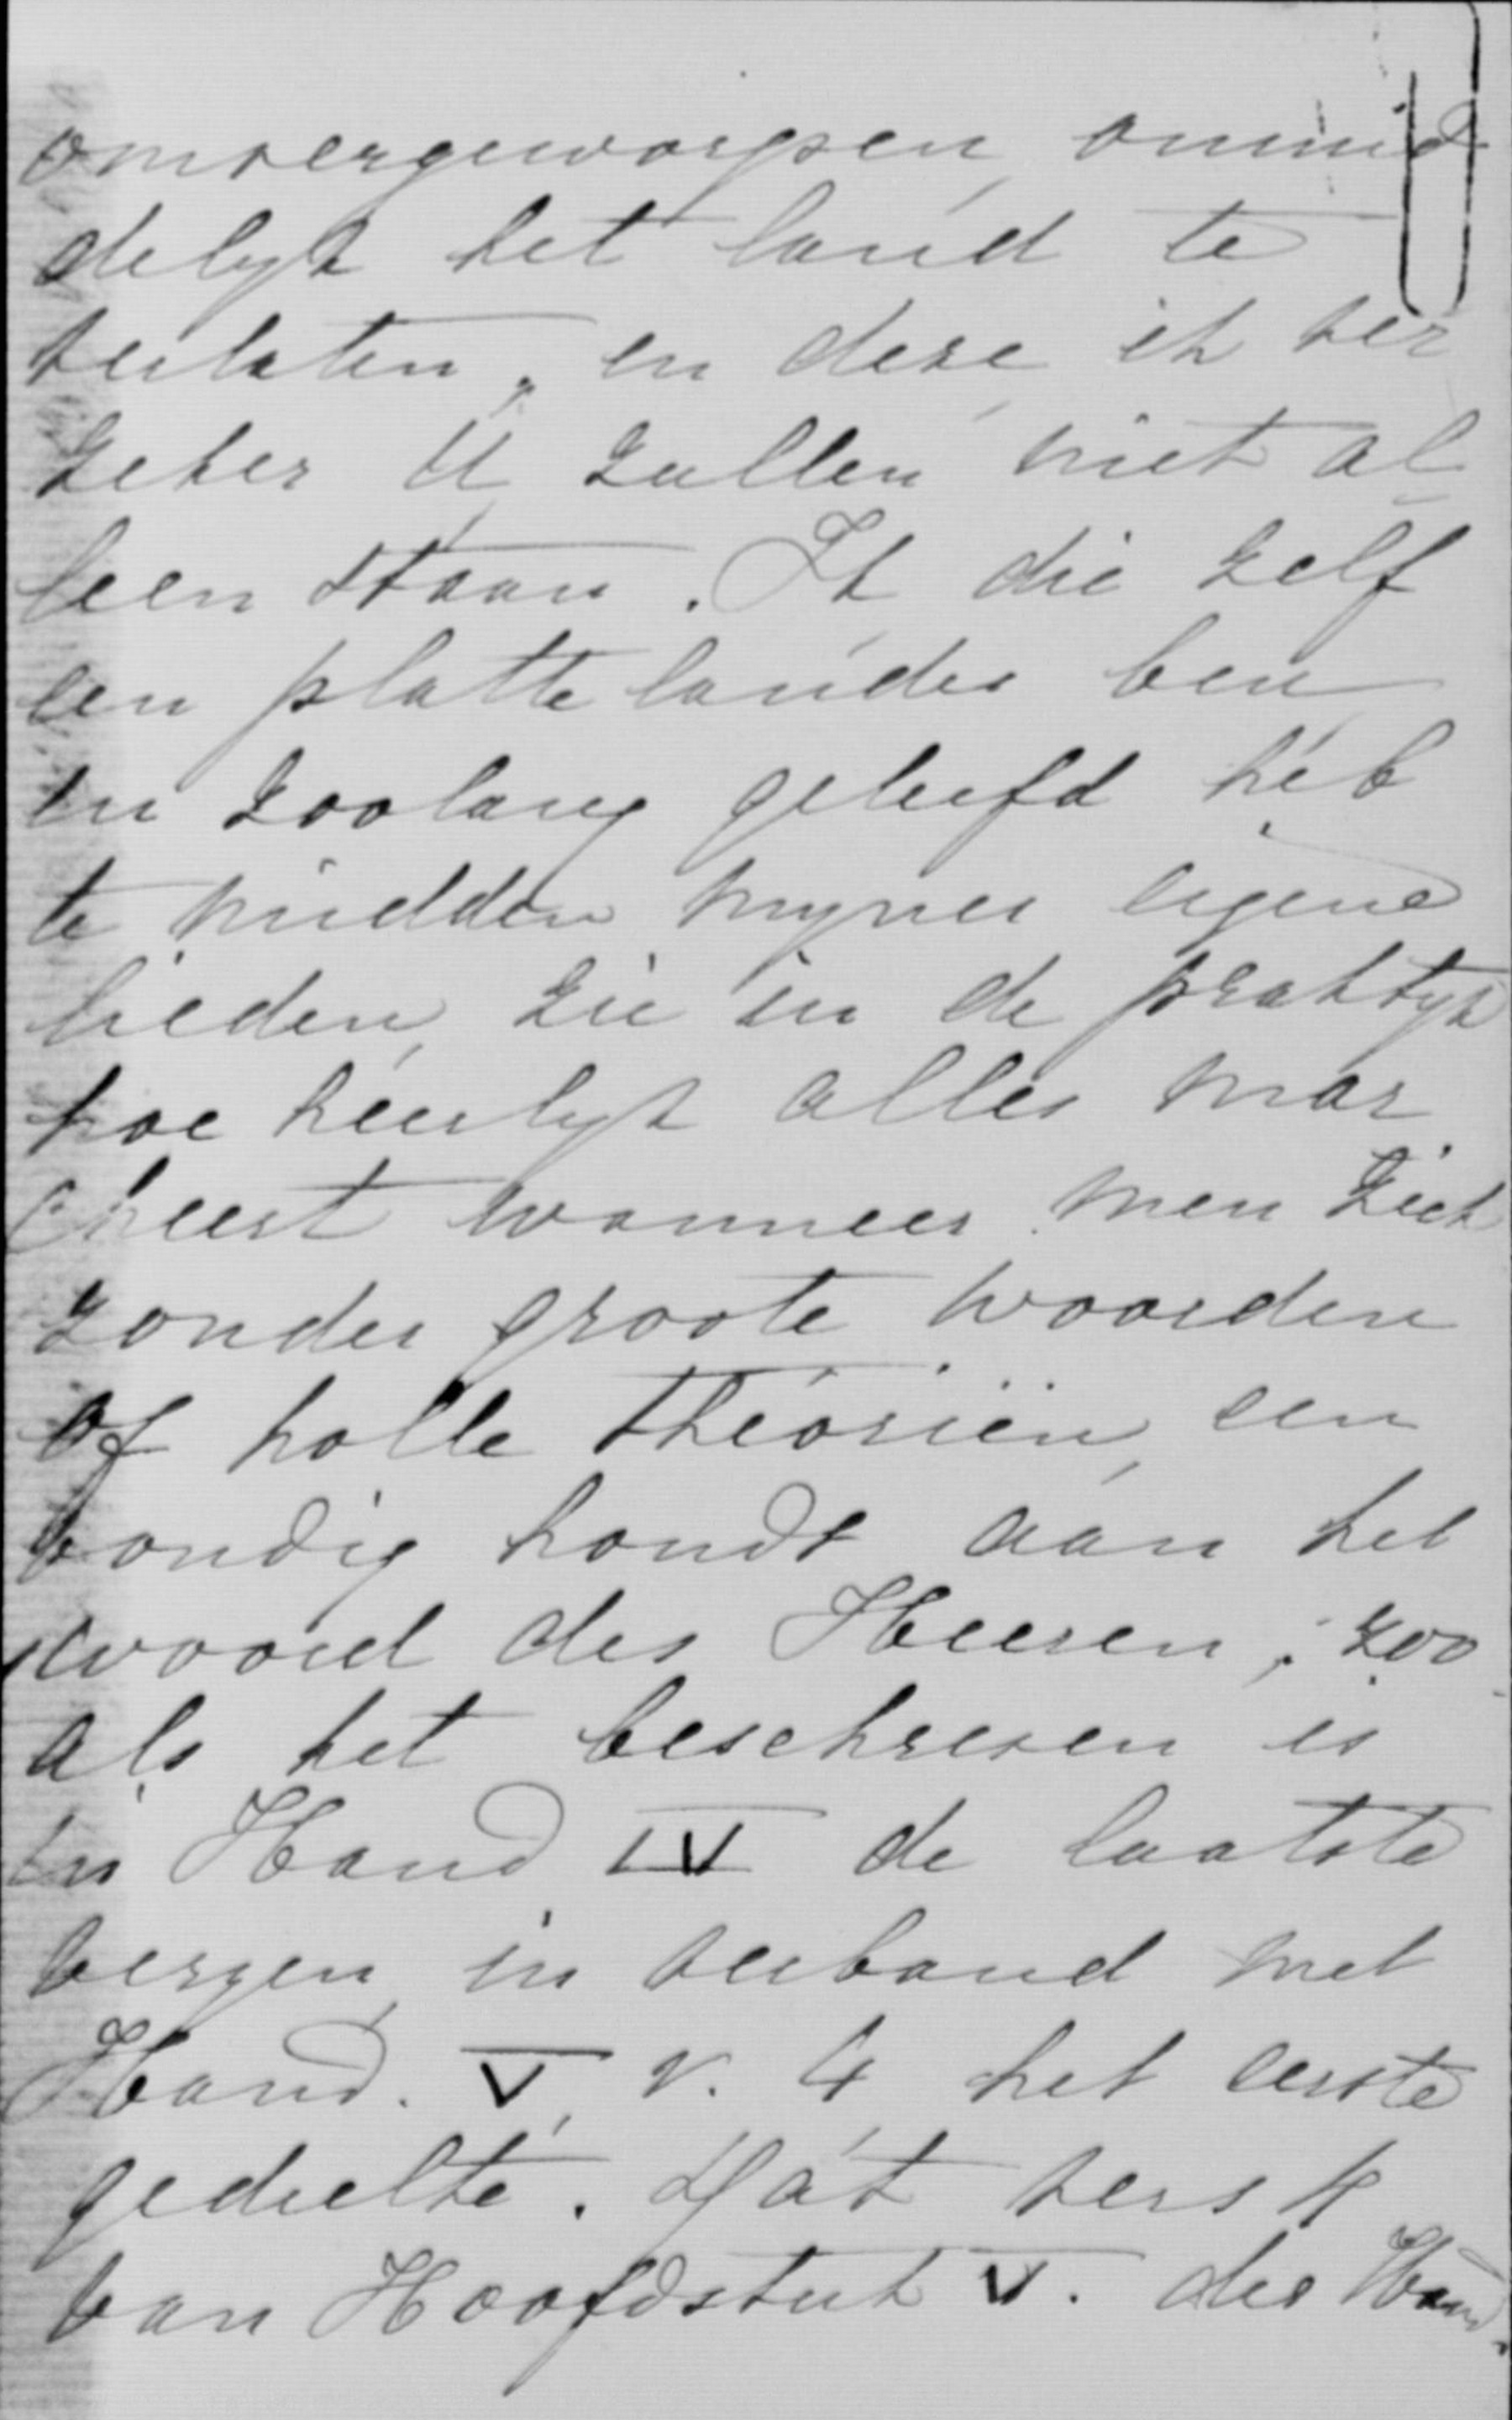 omvergeworpen, onmid
delyk het land te
verlaten, en deze, ik ver
zeker U zullen niet al
leen staan. Ik die zelf
een plattelander ben
en zoolang geleefd heb
te midden myner eigene
lieden, zie in de praktyk
hoe heerlyk alles mar
cheert wanneer men zich
zonder groote woorden
of holle theoriën, een
voudig houdt aan het
woord des Heeren, zoo
als het beschreven is
in Hand IV de laatste
verzen, in verband met
Hand. V, v. 4 het eerste
gedeelte. Dat vers 4
van Hoofdstuk V. der Hand.